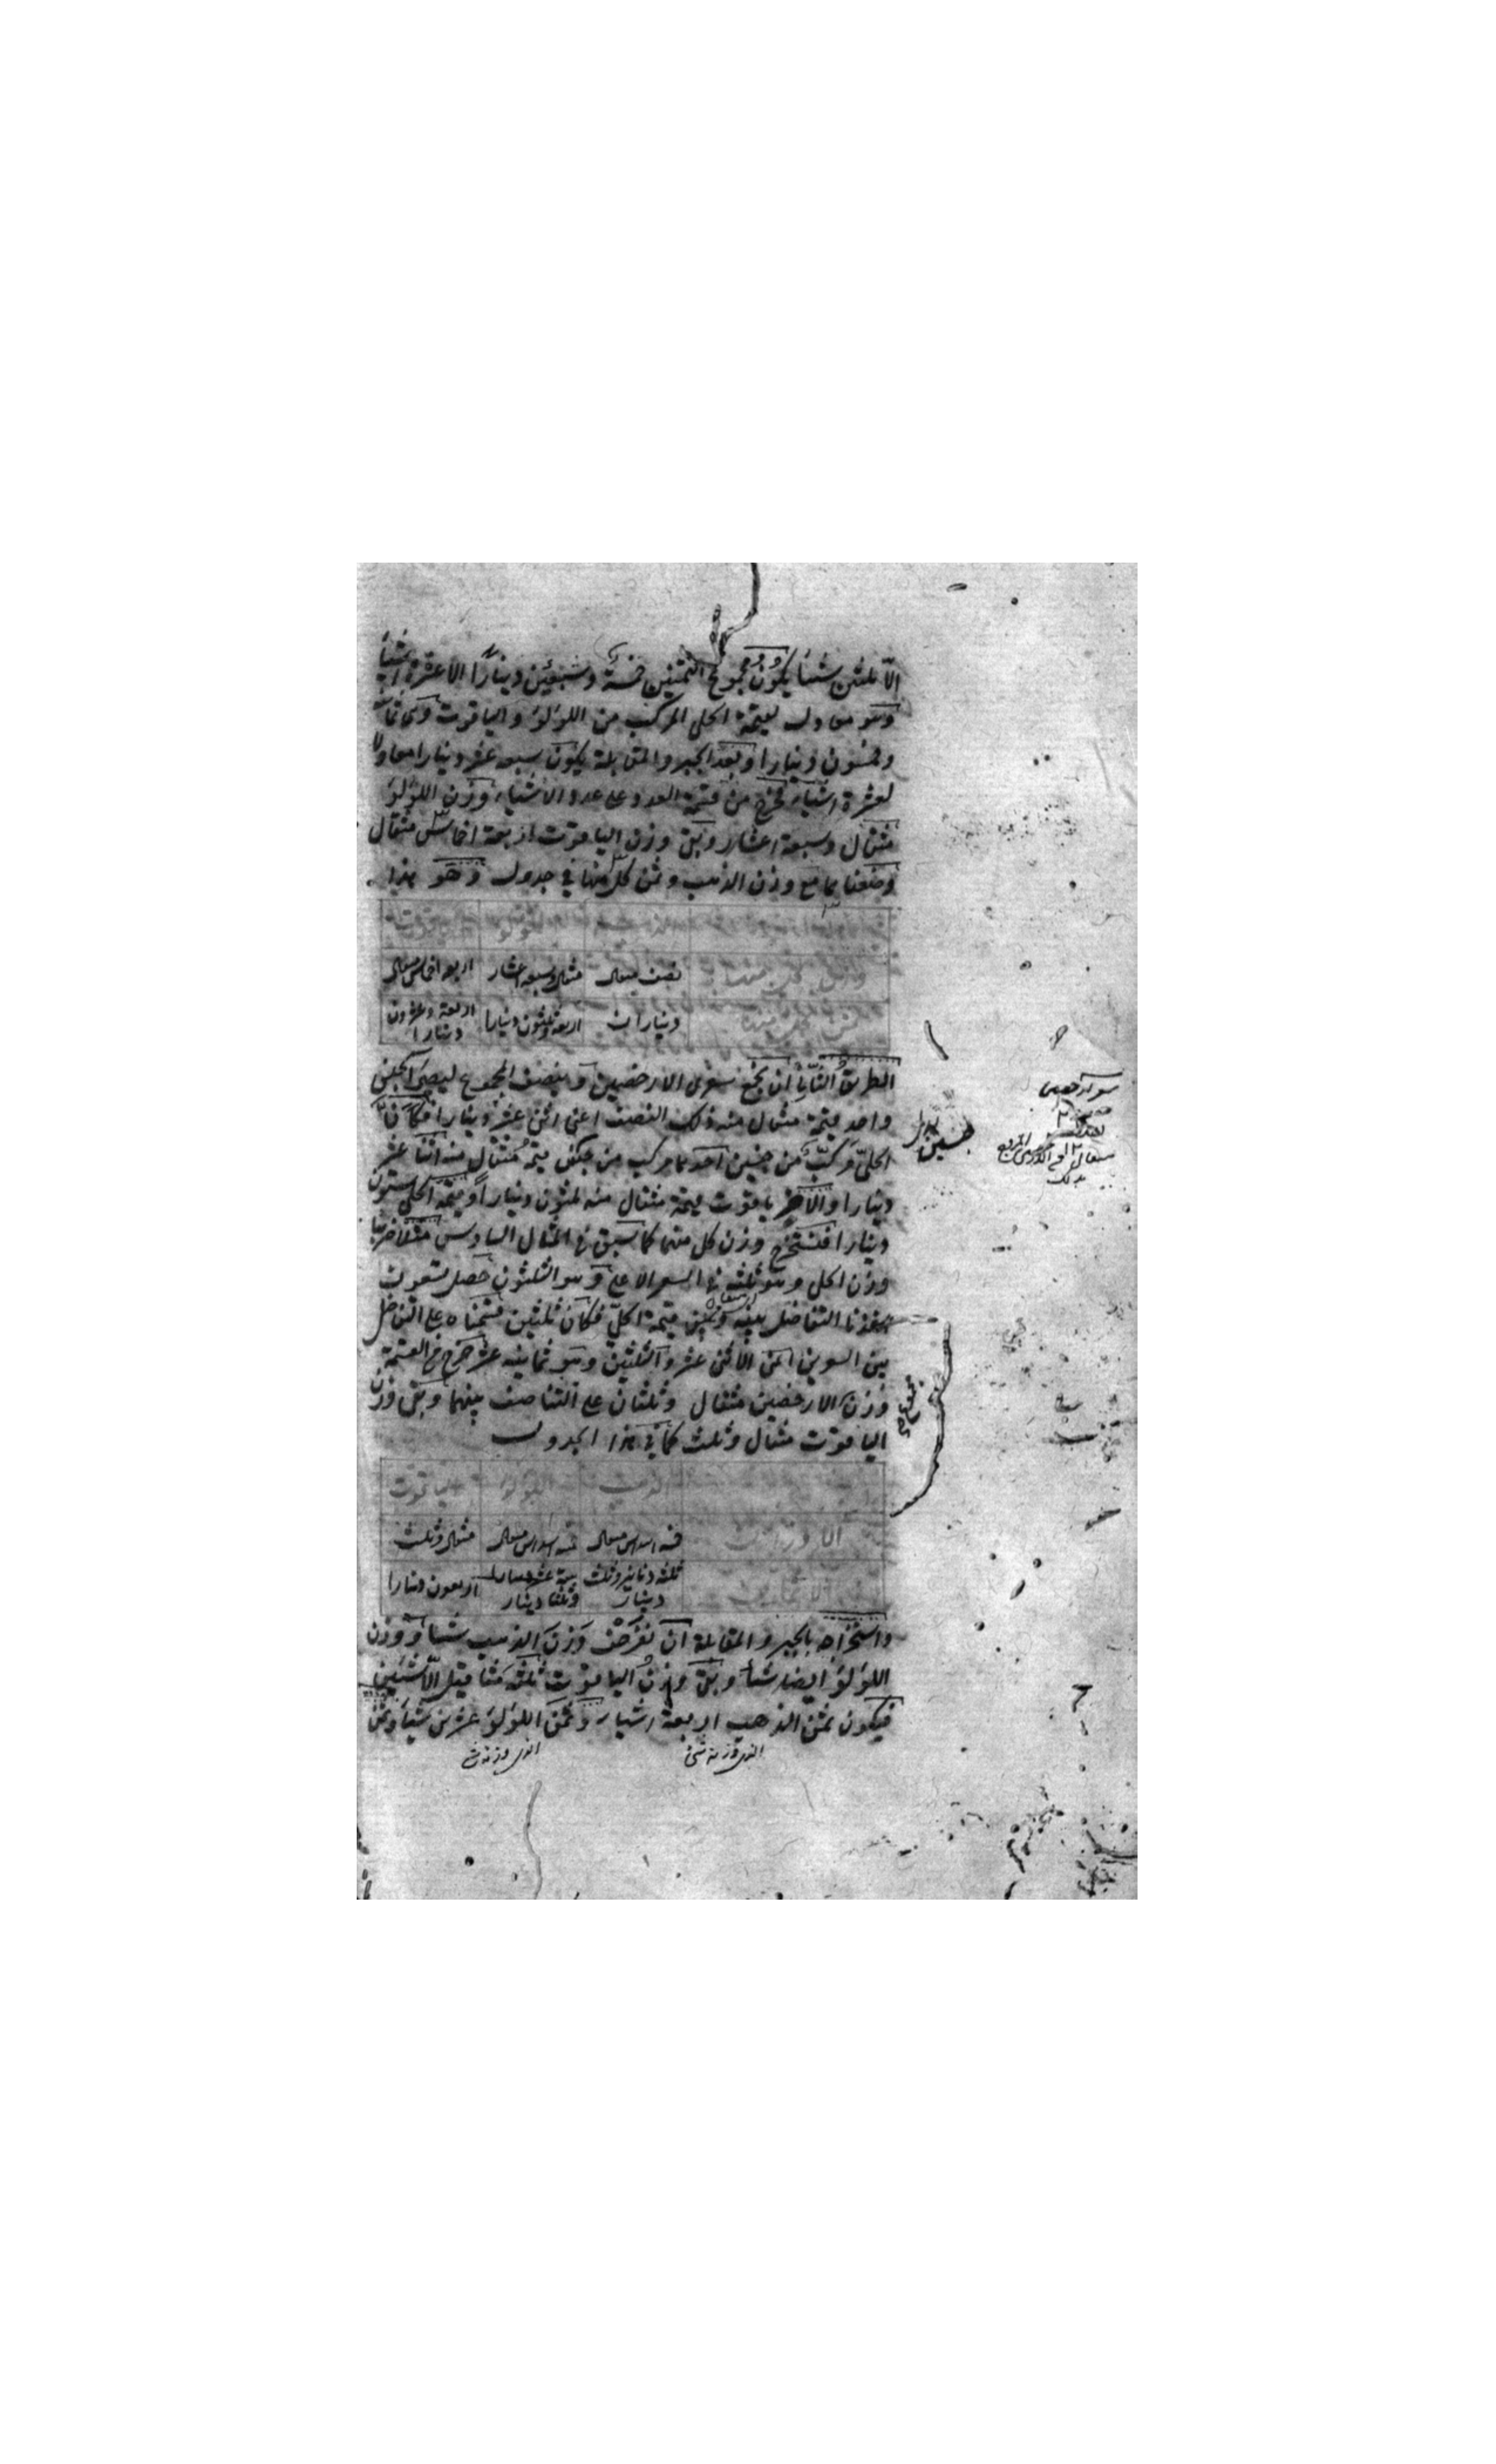 الّا ثلثين شيئا يكون مجموع الثمنين خمسة وسبعين دينارا الا عشرة اشيأ
وهو معادل لقيمة الحلى المركب من اللؤلؤ والياقوت وهى ثمانية
وخمسون دينارا وبعد الجبر والمقابلة يكون سبعة عشر دينارا معادلا
لعشرة اشياء فخرج من قسمة العدد على عدد الاشياء وزن اللؤلؤ
مثقال وسبعة اعشار وبقى وزن الياقوت اربعة اخماس مثقال
وضعنا مع وزن الذهب وثمن كل منها فى جدول وهو هذا
الذهب اللؤلؤ الياقوت
وزن كل منها نصف مثقال مثقال وسبعة اعشار اربعة اخماس مثقال
ثمن كل منها ديناران اربعة وثلثون دينارا اربعة وعشرون دينارا
الطريق الثانى ان نجمع سعرى الارخصين وننصف المجموع ليصير كجنس
واحد قيمة مثقال منه ذلك النصف اعنى اثنى عشر دينارا فكان
الحلىّ مركب من جنسين احدهما مركب من جنس قيمة مثقال منه اثنا عشر
دينارا والآخر ياقوت قيمة مثقال منه ثلثون دينارا وقيمة الحلى ستون
دينارا فنستخرج وزن كل منهما كما سبق فى المثال السادس مثلا ضربنا
وزن الحلى وهو ثلثة فى السعر الاعلى وهو الثلثون حصل تسعون
اخذنا التفاضل بينه وبين قيمة الحلىّ فكان ثلثين قسمناه على التفاضل
بين السعرين اعنى الاثنى عشر والثلثين وهو ثمانية عشر خرج من القسمة
وزن الارخصين مثقال وثلثان على التناصف بينهما وبقى وزن
الياقوت مثقال وثلث كما فى هذا الجدول
الذهب اللؤلؤ الياقوت
الاوزان خمسة اسداس مثقال خمسة اسداس مثقال مثقال وثلث
الاثمان ثلثة دنانير وثلث دينار ستة عشر دينارا وثلثا دينار اربعون دينارا
واستخراجه بالجبر والمقابلة ان نفرض وزن الذهب شيئا ووزن
اللؤلؤ ايضا شيئا وبقى وزن الياقوت ثلثة مثاقيل الّا شيئين
فيكون ثمن الذهب اربعة اشياء وثمن اللؤلؤ عشرين شيئا وثمن
الذى وزنه شئ الذى وزنه شئ